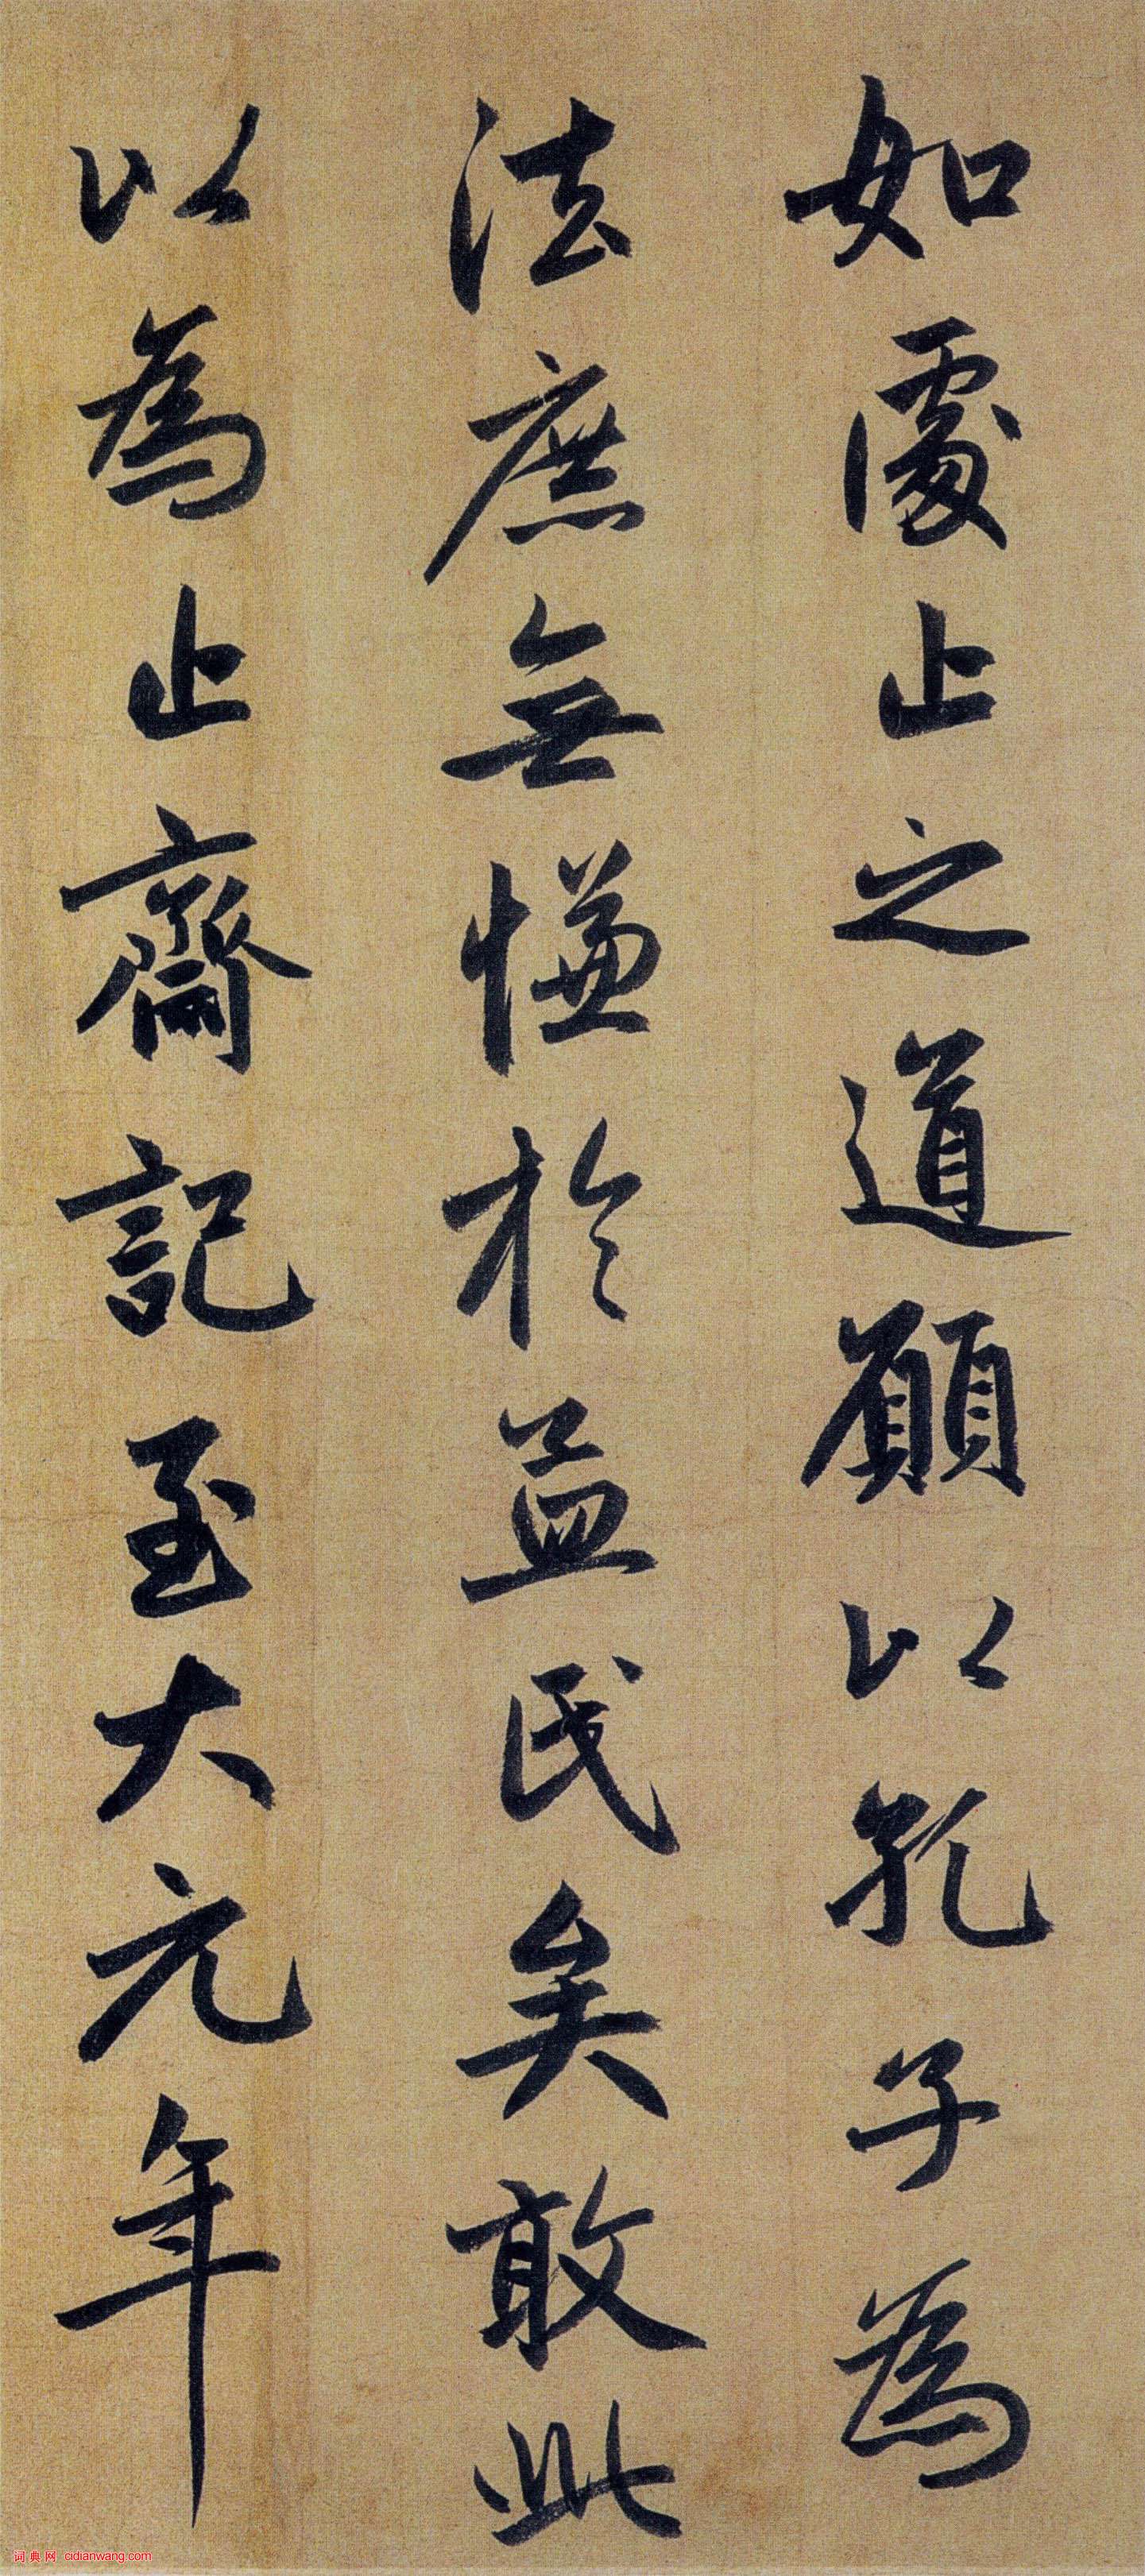 如處止之道願以孔子為
法庶無慊於益民矣敢此
以為止齋記至大元年
词典网 cidianwang.com